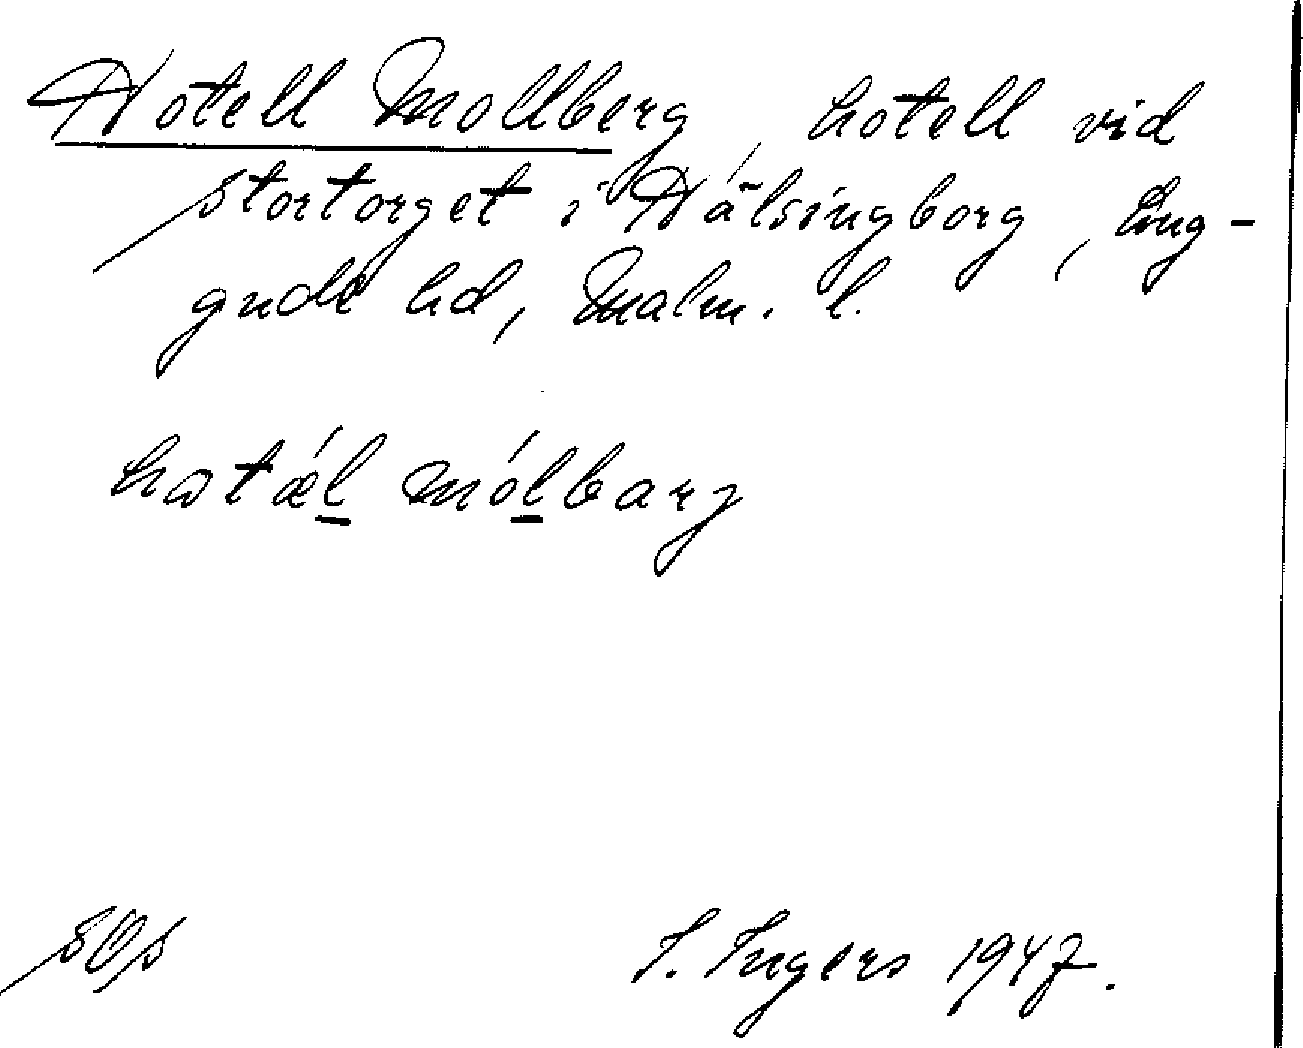 Hotell Mollberg, hotell vid
stortorget i Hälsingborg, Lug-
gude hd, Malm. l.
hωtǽl mólbarg
I. Ingers 1947.